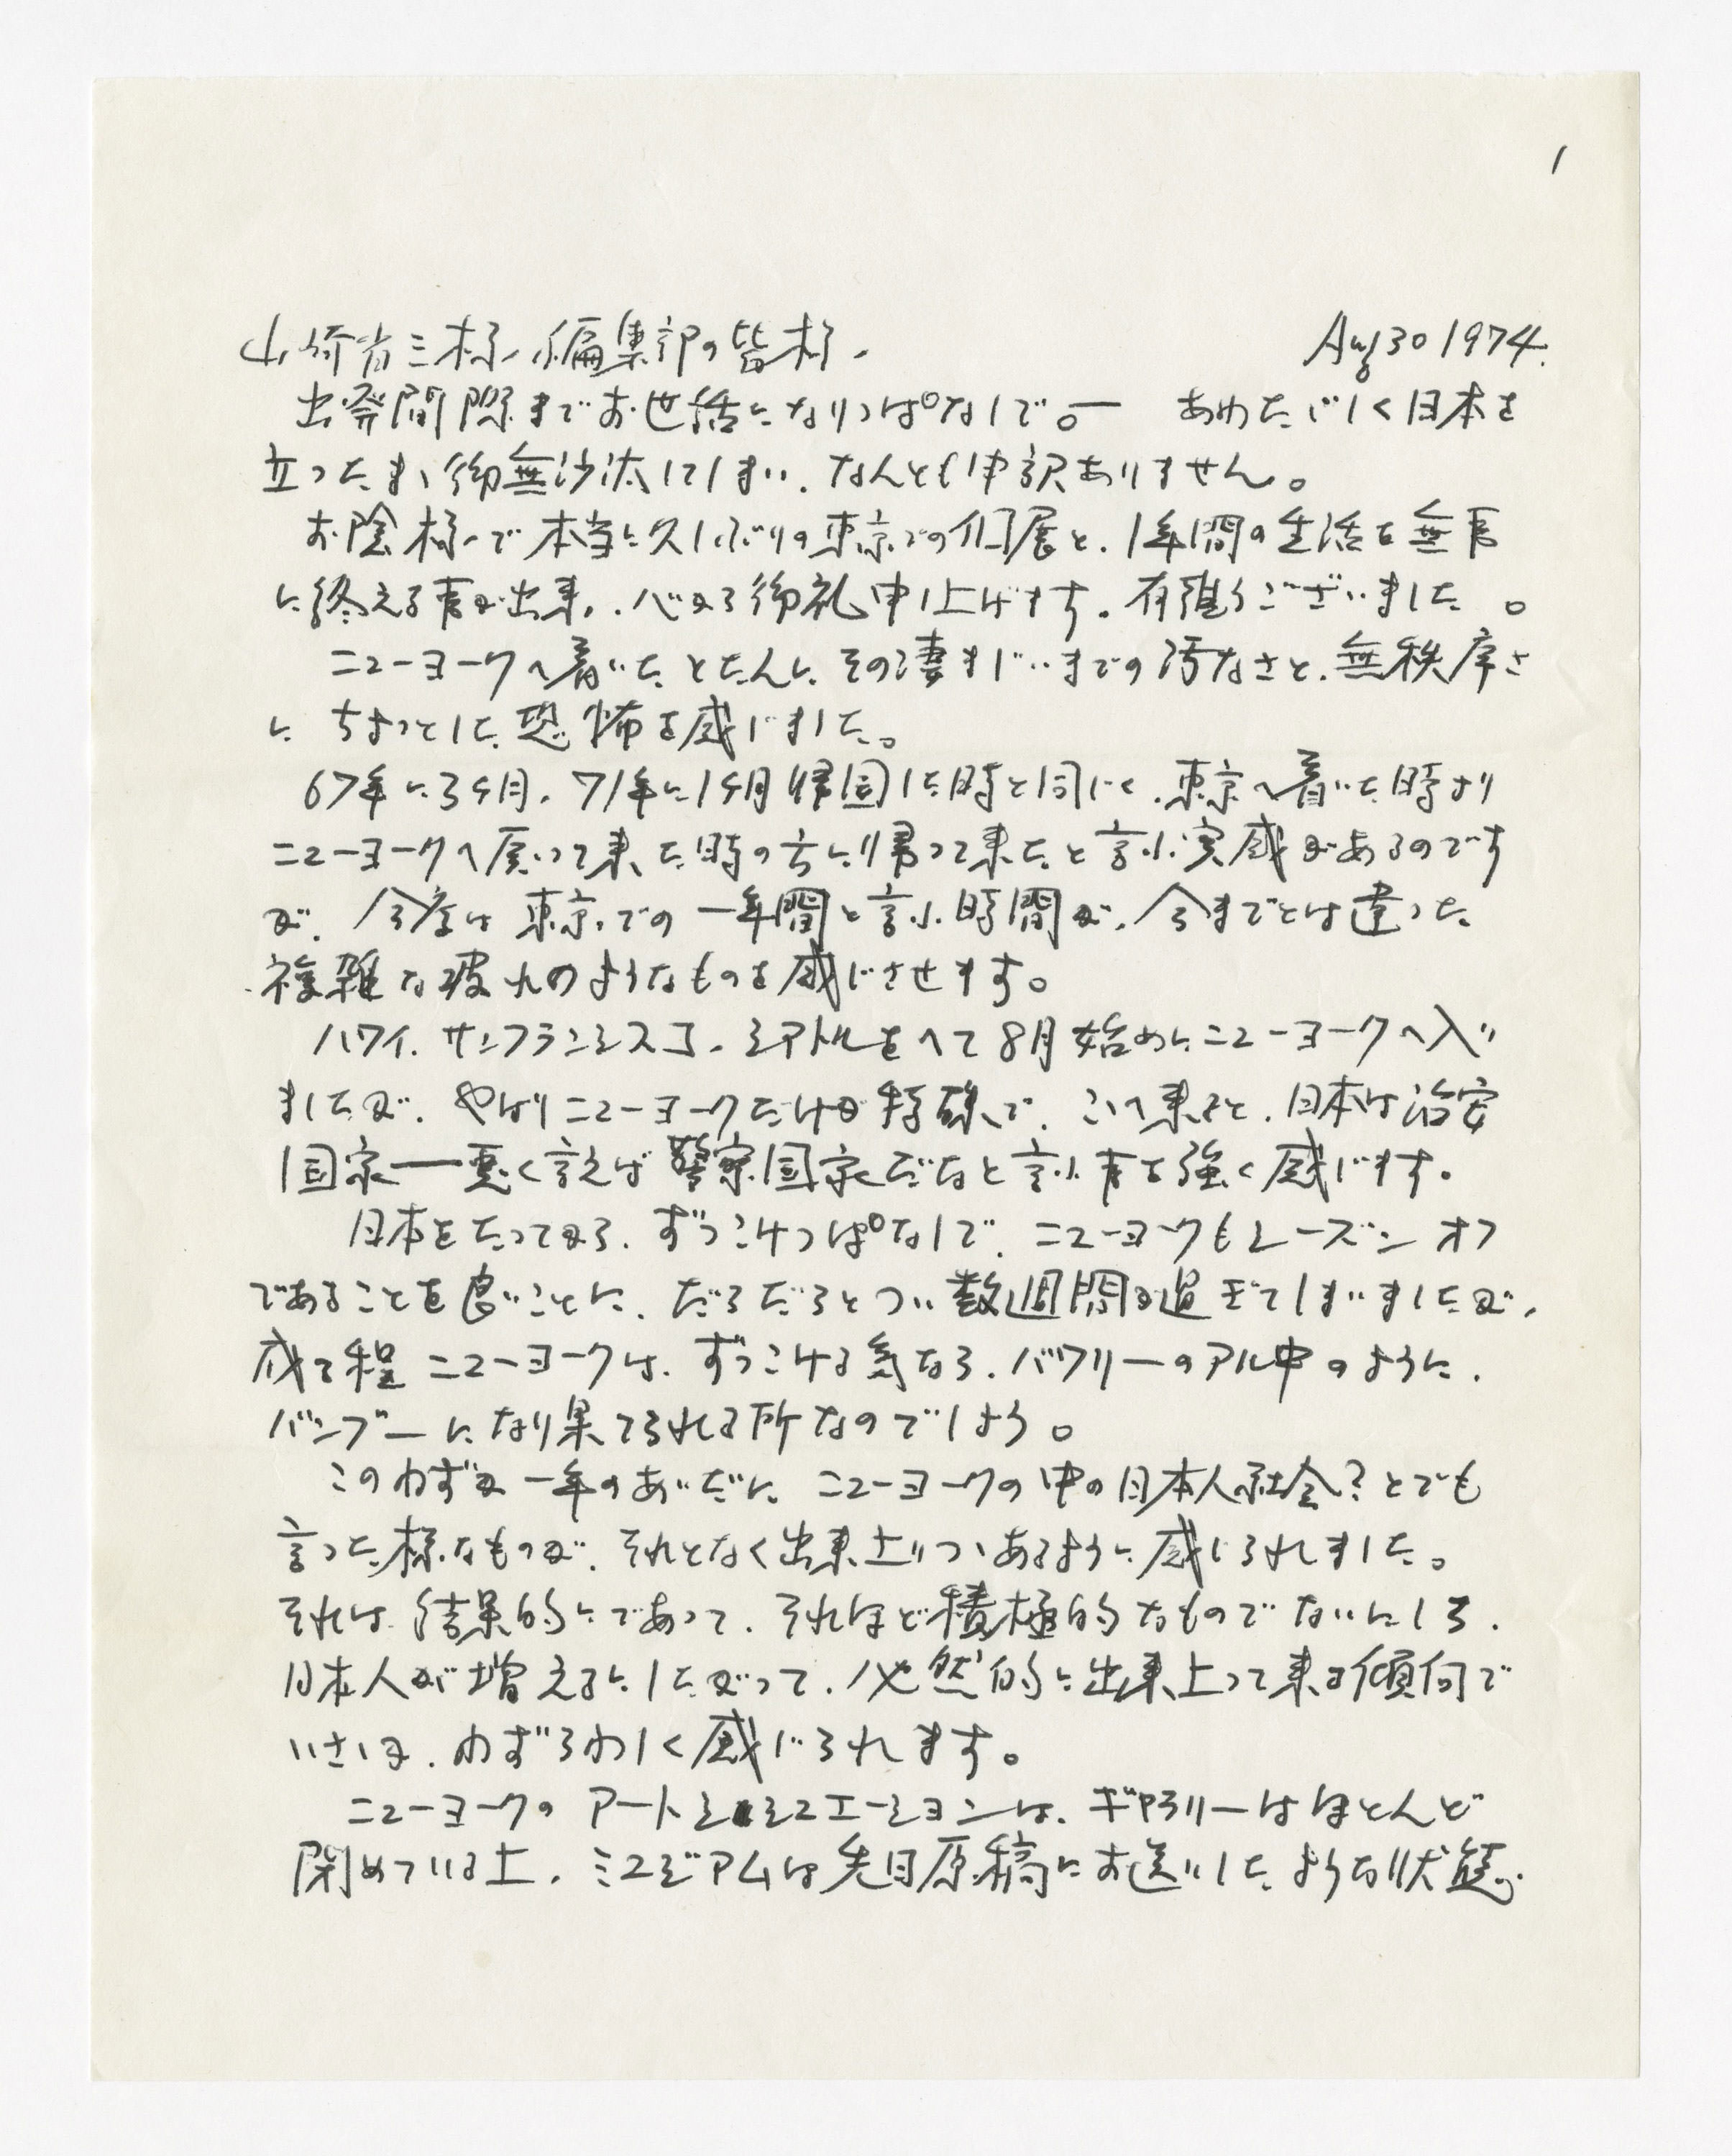 1
山崎省三様、編集部の皆様、 Aug 30 1974.
出発間際までお世話になりっぱなしで。ー あわただしく日本を
立ったまゝ御無沙汰してしまい、なんとも申訳ありません。
お陰様で本当に久しぶりの東京での個展と、1年間の生活を無事
に終える事が出来、心から御礼申し上げます。有難うございました。
ニューヨークへ着いたとたんに、その凄まじいまでの汚なさと、無秩序さ
に ちょっとした恐怖を感じました。
67年に3ヶ月、71年に1ヶ月帰国した時と同じく、東京へ着いた時より
ニューヨークへ戻って来た時の方に帰って来たと言ふ実感があるのです
が、今度は東京での一年間と言ふ時間が、今までとは違った
複雑な疲れのようなものを感じさせます。
ハワイ、サンフランシスコ、シアトルをへて8月始めにニューヨークへ入り
ましたが、やはりニューヨークだけが特殊で、こゝへ来ると、日本は治安
国家――悪く言えば警察国家だなと言ふ事を強く感じます。
日本をたってから、ずっこけっぱなしで、ニューヨークもシーズン オフ
であることを良いことに、だらだらとつい数週間が過ぎてしまいましたが、
成る程 ニューヨークは、ずっこける気なら、バワリーのアル中のように、
バンブーになり果てられる所なのでしょう。
このわずか一年のあいだに ニューヨークの中の日本人社会?とでも
言った様なものが、それとなく出来上りつゝあるように感じられました。
それは 結果的にであって、それほど積極的なものでないにしろ、
日本人が増えるにしたがって、必然的に出来上って来る傾向で
いさゝか、わずらわしく感じられます。
ニューヨークの アートシチュエーションは、ギャラリーはほとんど
閉めている上、ミュージアムは先日原稿にお送りしたような状態。